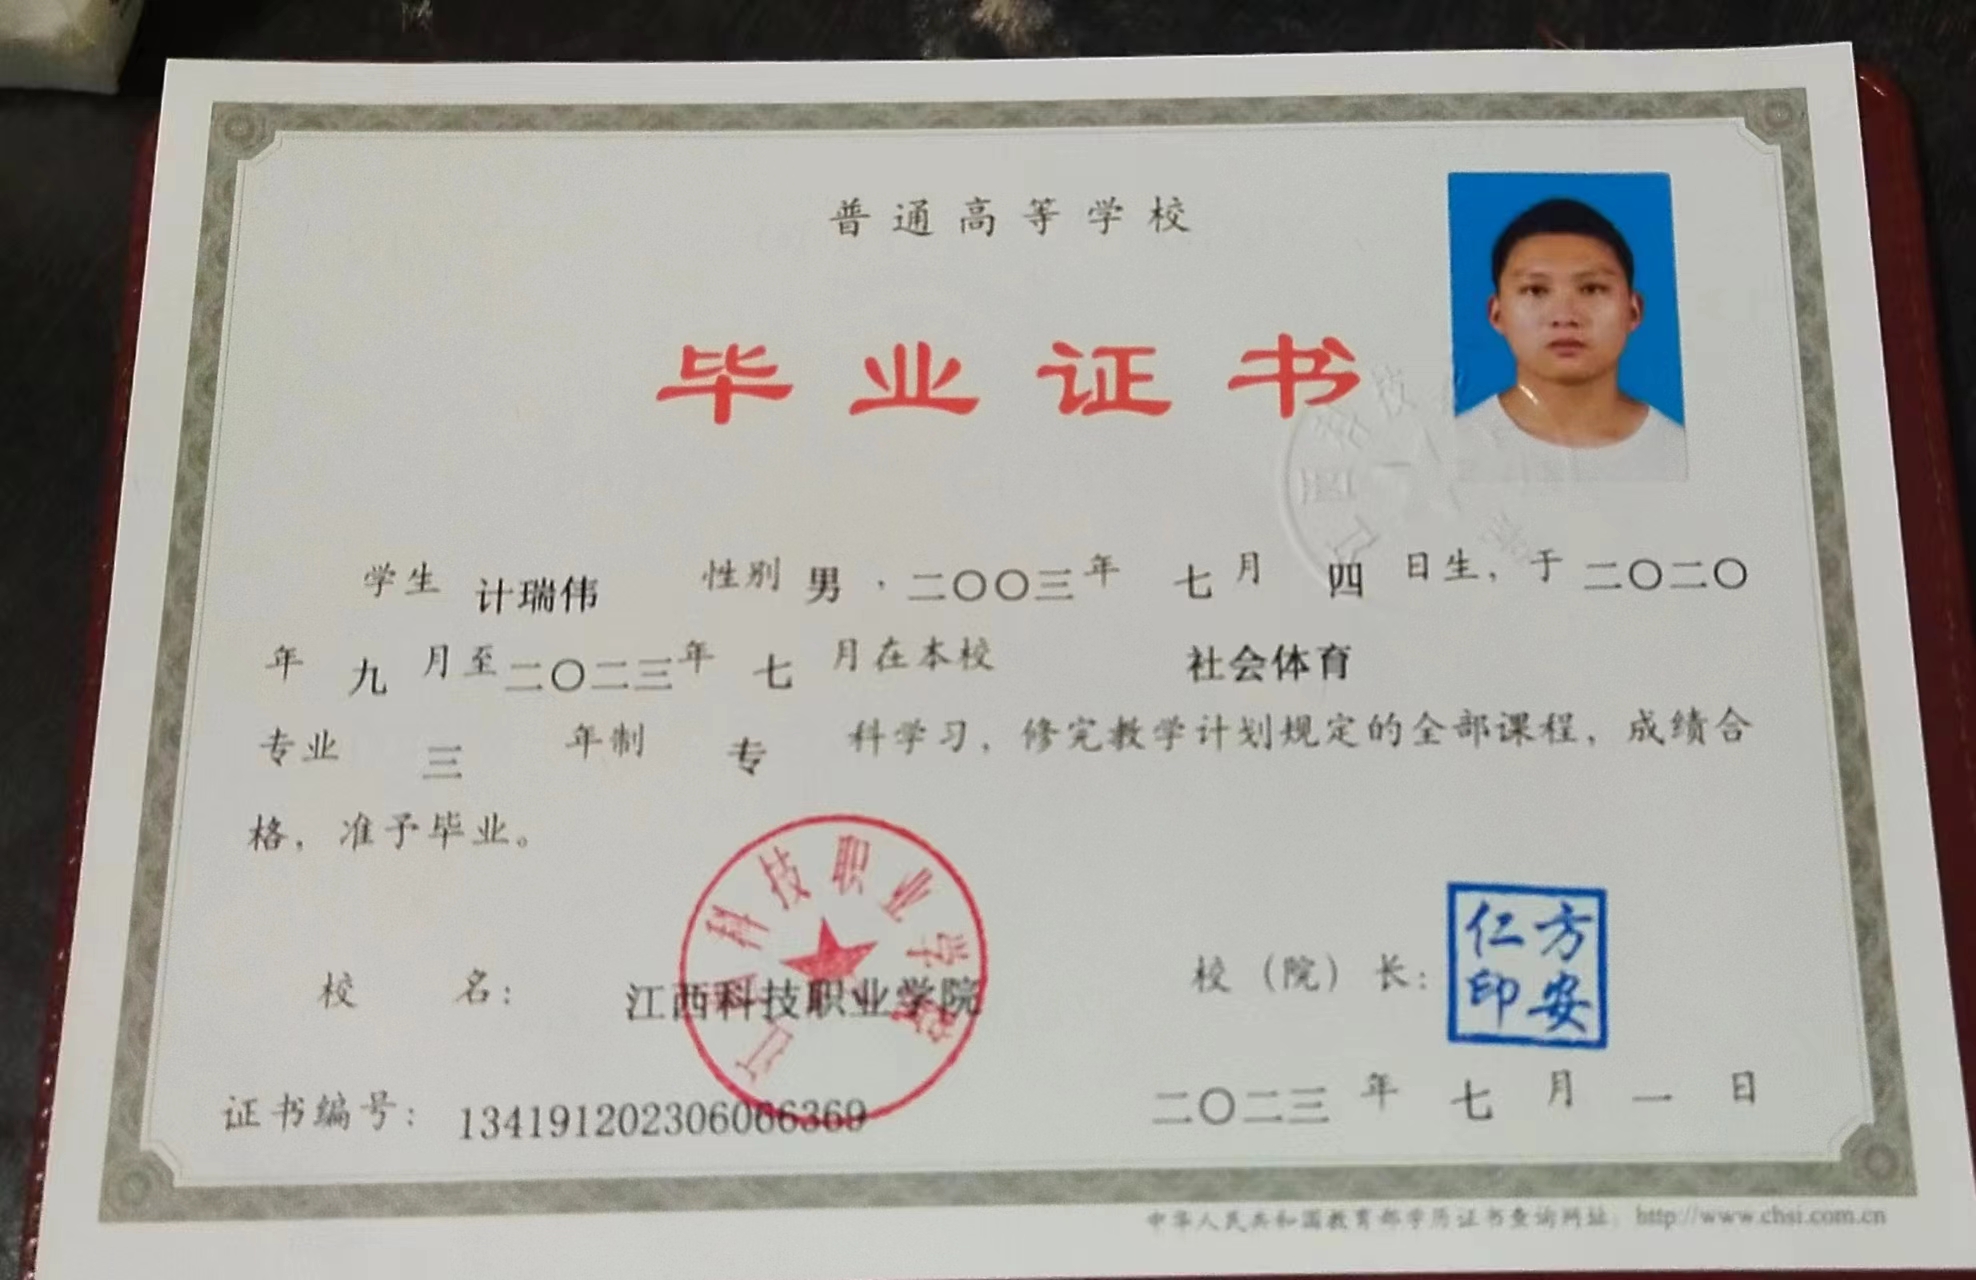 普通高等学校
毕业证书
学生 计瑞伟 性别 男，二〇〇三年 七月 四 日生，于二〇二〇
年 九 月至二〇二三年 七 月在本校 社会体育
专业 三 年制 专 科学习，修完教学计划规定的全部课程，成绩合
格，准予毕业。
江西科技职业学院
校 名： 江西科技职业学院 校（院）长： 方安仁印
证书编号： 134191202306066369 二〇二三年 七 月 一 日
中华人民共和国教育部学历证书查询网址：http://www.chsi.com.cn